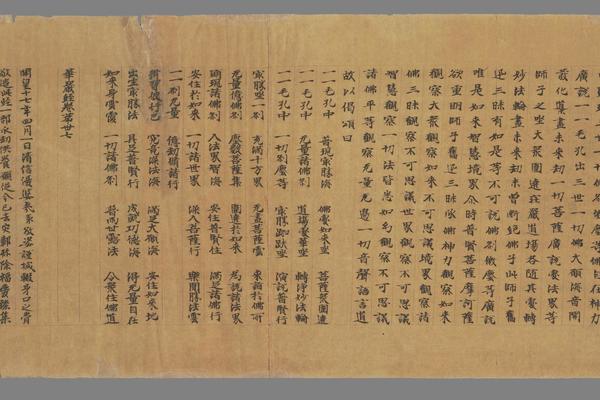 廣說一一毛孔出三世一切佛大願海音聞
化導盡未來劫一切菩薩廣說處法界等
師子之坐大眾圍遶莊嚴道場各隨其處轉
妙法輪盡未來劫未曾斷絕佛子此師子奮
迅三昧有如是等不可說佛剎微塵等廣說
唯是如來智慧境界尒時普賢菩薩摩訶薩
欲重明師子奮迅三昧承佛神力觀察如來
觀察大眾觀察如來不可思議境界觀察諸
佛三昧觀察不可思議世界觀察不可思議
智慧觀察一切法皆悉如幻觀察不可思議
諸佛平等觀察無量無邊一切音聲語言道
故以偈頌曰
一一毛孔中 普現最勝海 佛處如來坐 菩薩眾圍遶
一一毛孔中 無量諸佛剎 道場處華坐 轉淨妙法輪
一一毛孔中 一切剎塵等 最勝跏趺坐 演說普賢行
最勝坐一剎 充滿十方界 無盡菩薩雲 來詣於佛所
無量億佛剎 塵數菩薩集 圍遶於如來 為說諸法界
爾現諸佛剎 入法界智海 安住普賢住 滿足諸佛行
安住於如來 一切諸世界 深入菩薩行 樂聞勝法雲
一一剎無量 億劫備諸行
備習彼行已 究竟深法海 滿足大願海 安住如來地
出生最勝法 具足普賢行 成就功德海 得無量自在
如來身雲電 一切諸佛剎 普雨甘露法 令眾住佛道
華嚴經卷第卅七
開皇十七年四月一日清信優婆夷袁敬姿謹減身口之費
敬造此經一部永劫供養願從今已去灾鄣殄除福慶臻集